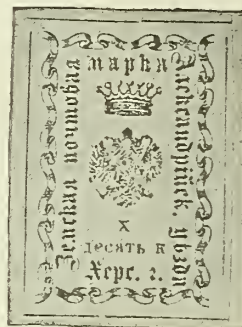 Земская почтовая
марка
Александрійск. уѣзда
X
десять к
Херс. г.